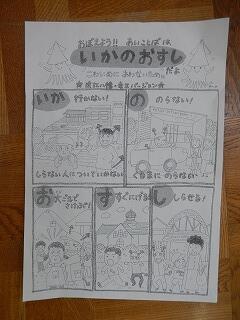 おぼえよう!! あいことばは
いかのおすし
だよ
こわいめに あわないため
いか 行かない!
しらない人についていかない
の のらない!
くるまに のらない
お 大ごえで さけぶ!
す すぐにげる!
し しらせる!